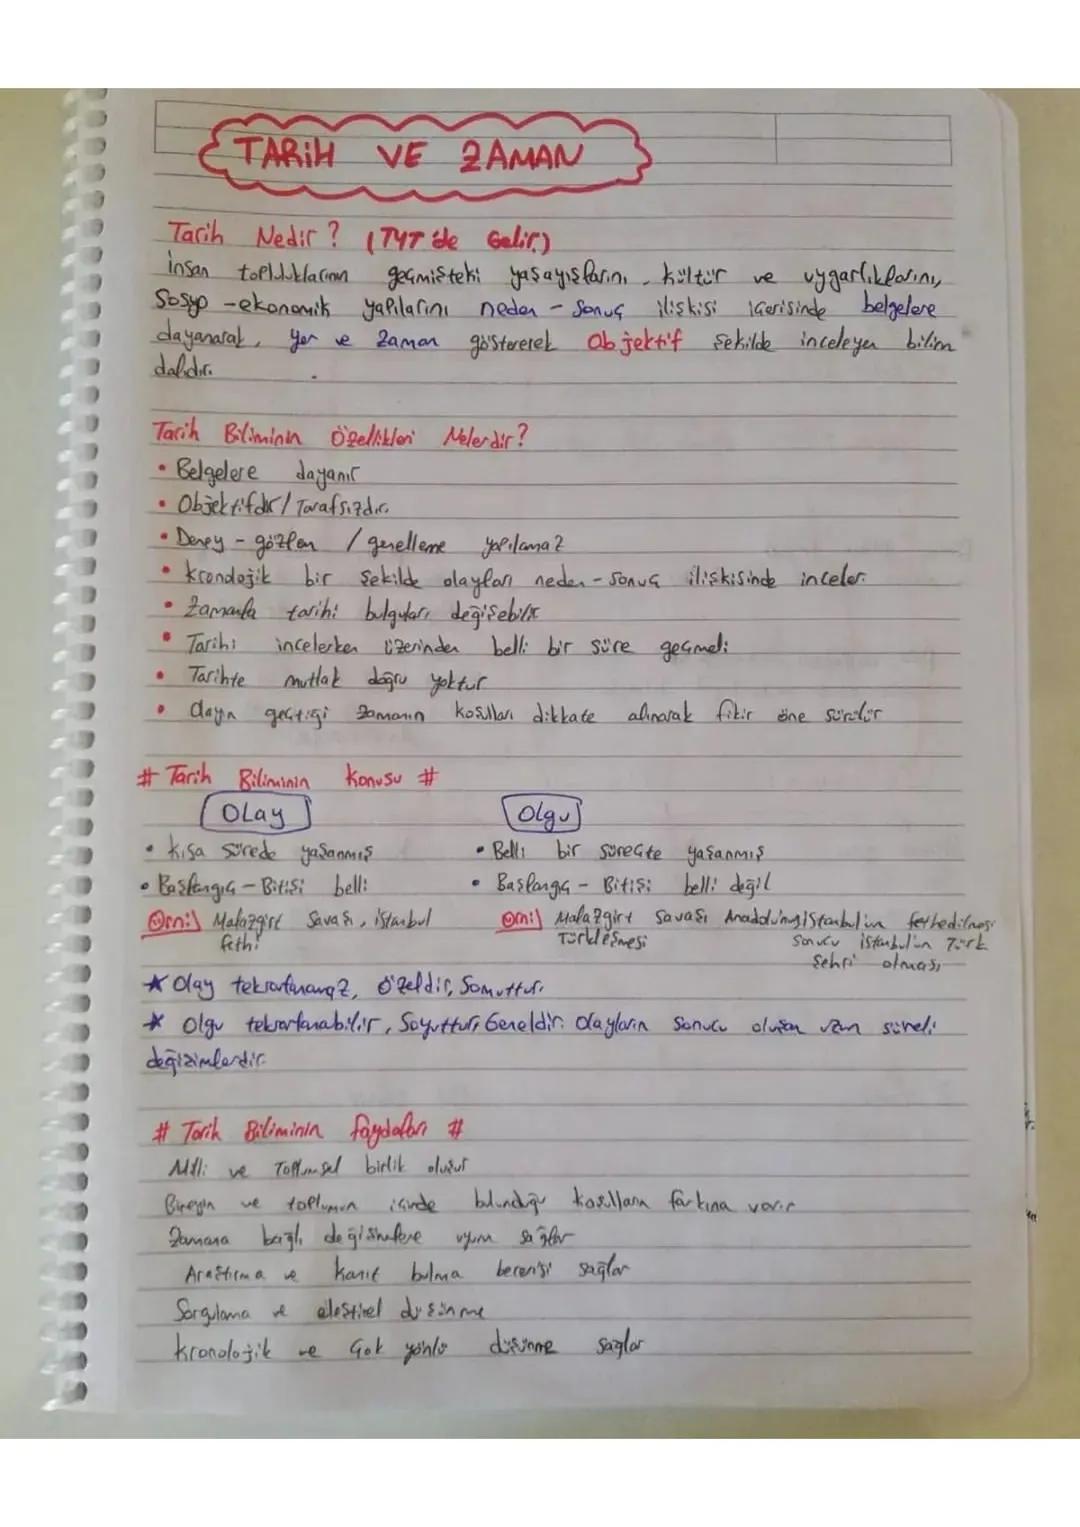 TARİH VE ZAMAN
Tarih Nedir? (TYT'de Gelir)
İnsan topluluklarının geçmişteki yaşayışlarını, kültür ve uygarlıklarını,
Sosyo-ekonomik yapılarını neden-sonuç ilişkisi içerisinde belgelere
dayanarak, yer ve zaman göstererek Objektif şekilde inceleyen bilim
dalıdır.
Tarih Biliminin Özellikleri Nelerdir?
• Belgelere dayanır
• Objektifdir/Tarafsızdır.
• Deney-gözlem / genelleme yapılamaz
• Kronolojik bir şekilde olayları neden-sonuç ilişkisinde inceler.
• Zamanla tarihi bulguları değişebilir
• Tarihi incelerken üzerinden belli bir süre geçmeli
• Tarihte mutlak doğru yoktur
• Olayın geçtiği zamanın koşulları dikkate alınarak fikir öne sürülür
# Tarih Biliminin Konusu #
Olay Olgu
• Kısa sürede yaşanmış • Belli bir süreçte yaşanmış
• Başlangıç-Bitişi belli • Başlangıç-Bitişi belli değil
Örn:) Malazgirt Savaşı, İstanbul Örn:) Malazgirt Savaşı Anadolu'nun İstanbul'un fethedilmesi
fethi Türkleşmesi sonucu İstanbul'un Türk
şehri olması
* Olay tekrarlanamaz, özeldir, Somuttur.
* Olgu tekrarlanabilir, Soyuttur, Geneldir. Olayların sonucu oluşan uzun süreli
değişimlerdir.
# Tarih Biliminin faydaları #
Milli ve Toplumsal birlik oluşur
Bireyin ve toplumun içinde bulunduğu koşulların farkına varır
Zamana bağlı değişimlere uyum sağlar
Araştırma ve kanıt bulma becerisi sağlar
Sorgulama ve eleştirel düşünme
Kronolojik ve Çok yönlü düşünme sağlar